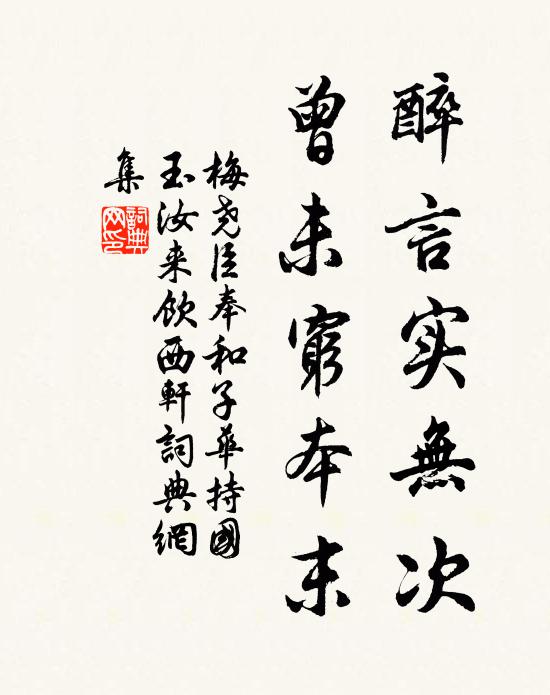 醉言实無次
曾未窮本末
梅尧臣奉和子華持國
玉汝来飲西軒詞典網
集
詞典网印